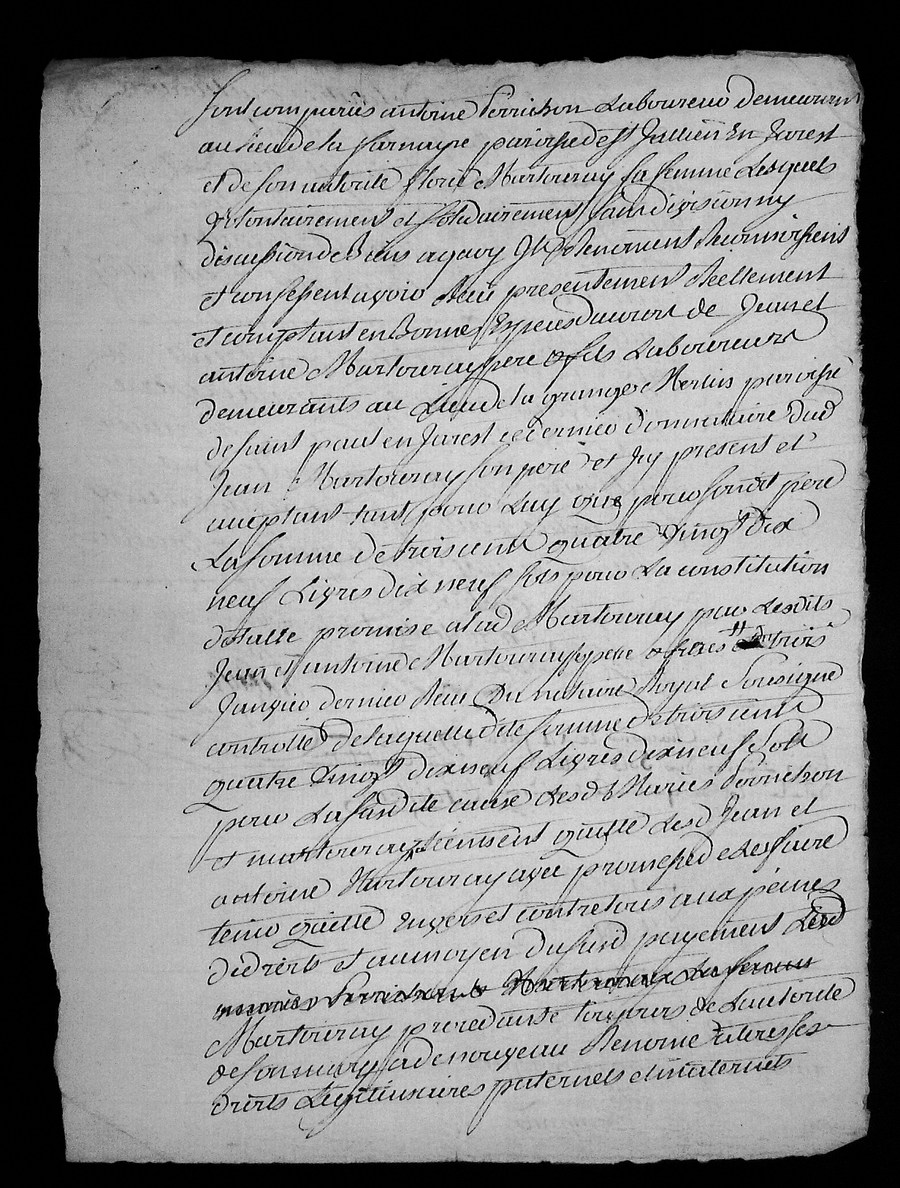 Sont comparûs antoine Perrichon Laboureur demeurant
au lieu de la parroisse de st Jullien En Jarest
et de son autorité florie Martouray sa femme Lesquels
volontairement et solidairement sans division ny
discussion de Biens aquoy Ils Renoncent Reconnoissent
et confessent avoir Receu presentement Reellement
et comptant en Bonnes Especes daucourt de Jean et
antoine Martouray pere & fils Laboureurs
demeurants au Lieu de la grange Merlin paroisse
de saint paul en Jarest ce dernier donnataire dud
Jean Martouray son pere et Icy present et
aceptant tant pour Luy que pour sondit pere
La somme de trois cent quatre vingt dix
neuf Livres dix neuf sols pour La constitution
dotalle promise alad Martouray par Lesdits
Jean et antoine Martouray pere & freres trois
Janvier dernier Receu Du notaire Royal Soussigné
controllé De laquelle dite somme de trois cent
quatre vingt dix neuf Livres dix neuf Sols
pour La susdite cause Lesd Mariés Perrichon
et martouray tiennent quitte Lesd Jean et
antoine Martouray avec promesse de Les faire
tenir quitte Envers et contre tous aux peines
de droits et au moyen du susd payement Lad
mariés Perrichon & Martouray La femme
Martouray procedante toujours de L'autorité
de son mary a de nouveau Renoncé a tous ses
droits Legitimaires paternels et maternels